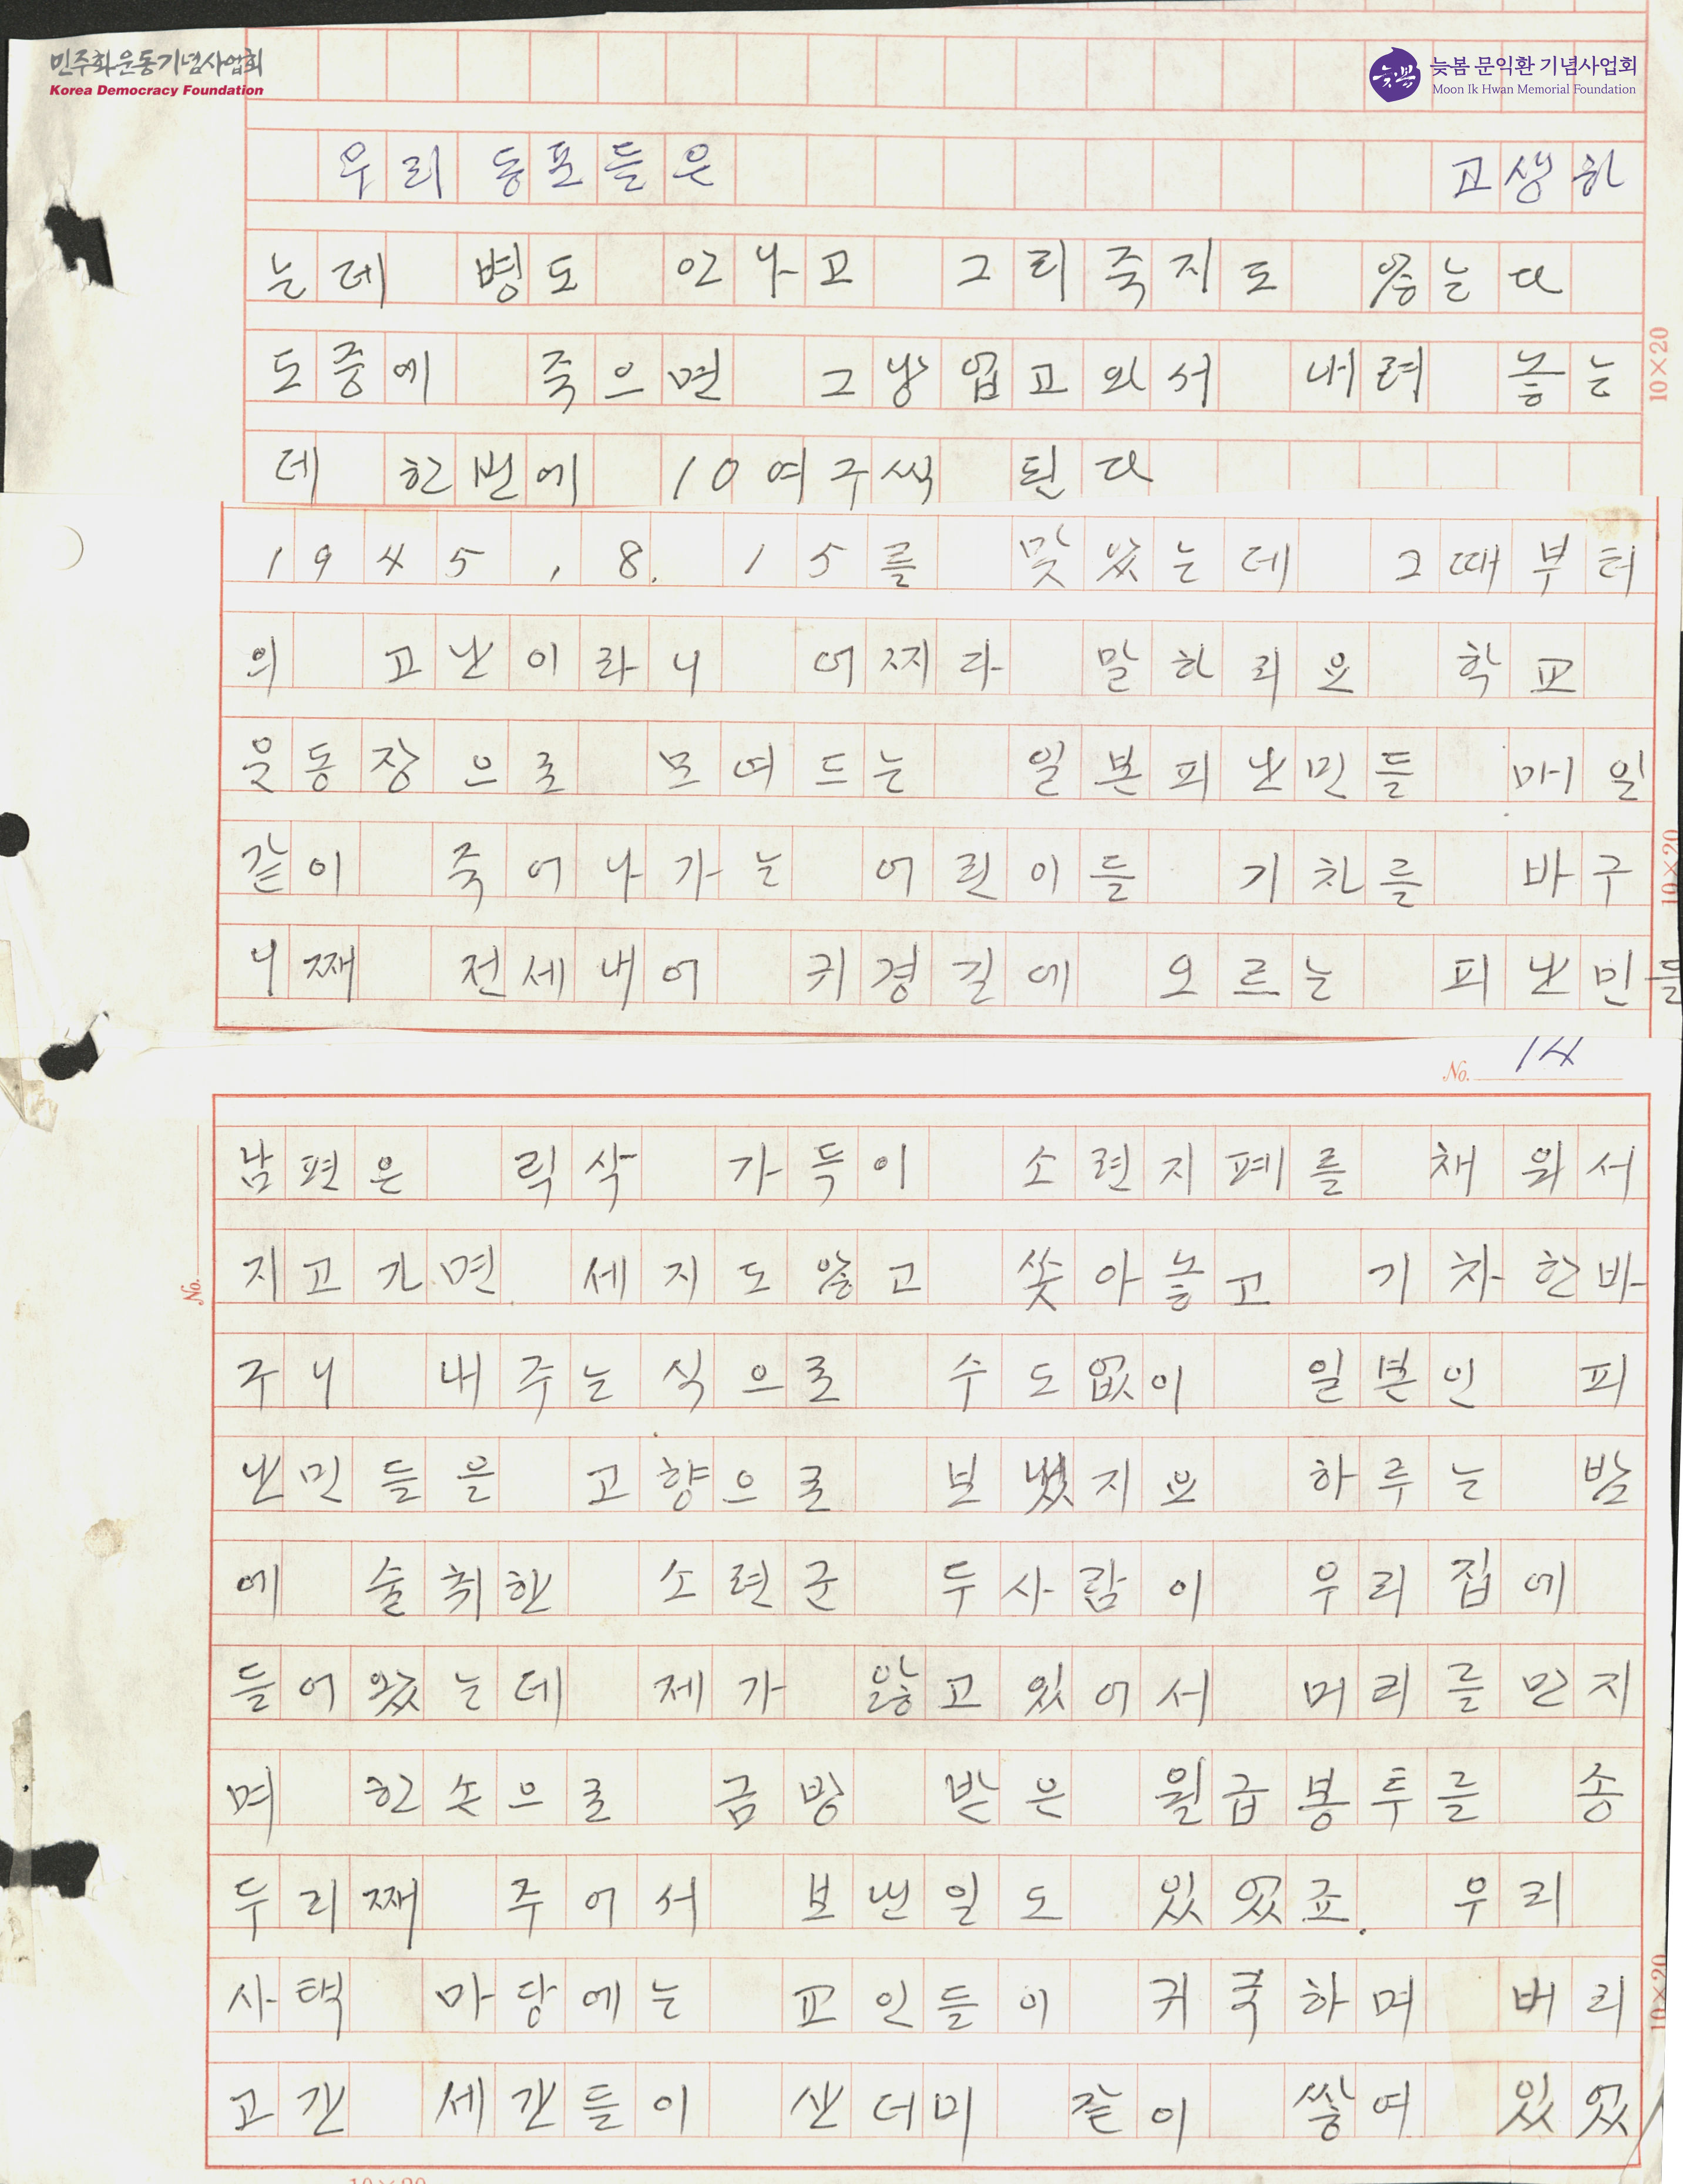 민주화운동기념사업회
Korea Democracy Foundation
늦봄 문익환 기념사업회
Moon Ik Hwan Memorial Foundation
우리 동포들은 고생하
는데 병도 안나고 그리죽지도 않는다
도중에 죽으면 그냥업고와서 내려 놓는
데 한번에 10여구씩 된다
10×20
1945, 8. 15를 맞았는데 그때부터
의 고난이라니 어찌다 말하리요 학교
웃동장으로 모여드는 일본피난민들 매일
같이 죽어나가는 어린이들 기차를 바구
니째 전세내어 귀경길에 오르는 피난민들
10×20
No. 14
남편은 릭삭 가득이 소련지폐를 채워서
지고가면 세지도않고 쏫아놓고 기차한바
구니 내주는식으로 수도없이 일본인 피
난민들을 고향으로 보냈지요 하루는 밤
에 술취한 소련군 두사람이 우리집에
들어왔는데 제가 앓고있어서 머리를만지
며 한손으로 금방 받은 월급봉투를 송
두리째 주어서 보낸일도 있었죠. 우리
사택 마당에는 교인들이 귀국하며 버리
고간 세간들이 산더미 같이 쌓여 있었
No.
10×20
10×20